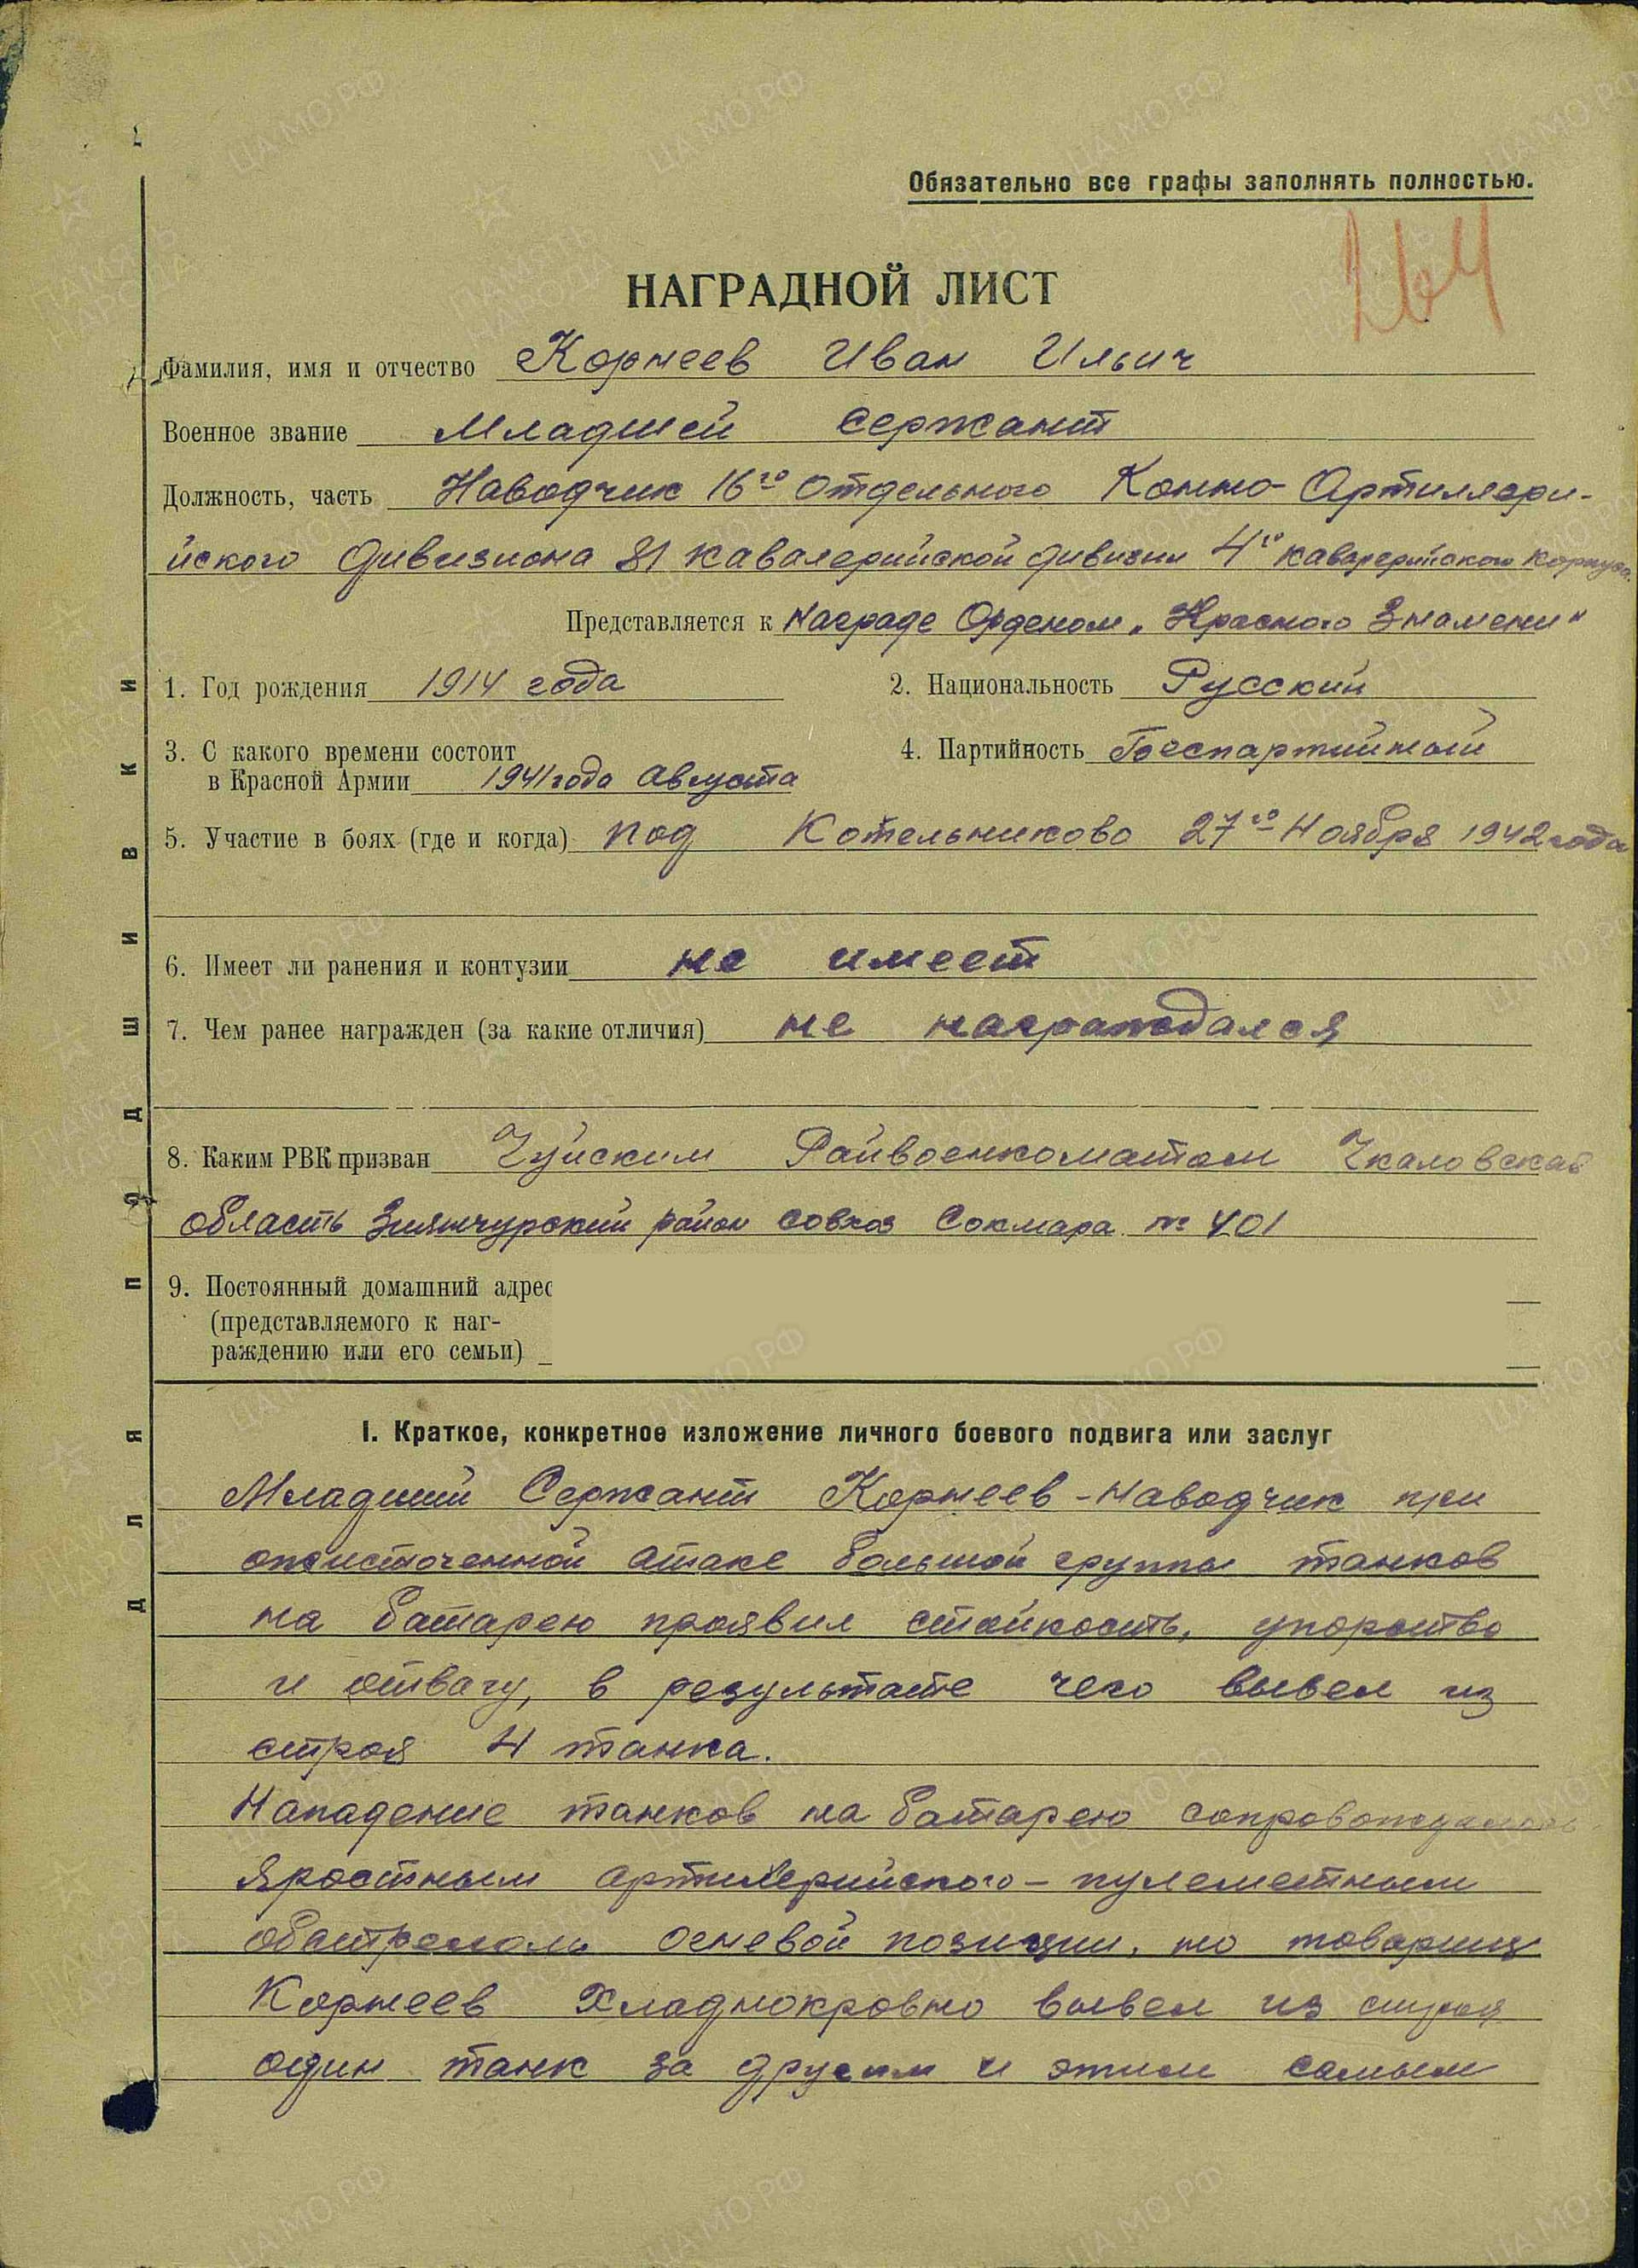 Обязательно все графы заполнять полностью.
264
НАГРАДНОЙ ЛИСТ
Фамилия, имя и отчество Корнеев Иван Ильич
Военное звание Младшей сержант
Должность, часть Наводчик 16го Отдельного Конно-Артиллери-
йского дивизиона 81 кавалерийской дивизии 4го кавалерийского корпуса.
Представляется к Награде Орденом „Красного Знамени"
1. Год рождения 1914 года 2. Национальность Русский
3. С какого времени состоит
в Красной Армии 1941 года Августа
4. Партийность Беспартийный
5. Участие в боях (где и когда) под Котельниково 27го Ноября 1942 года
6. Имеет ли ранения и контузии не имеет
7. Чем ранее награжден (за какие отличия) не награждался
8. Каким РВК призван Чуйским Райвоенкоматом Чкаловская
область Зиянчурский район совхоз Сокмара № 401
9. Постоянный домашний адрес
(представляемого к наг-
раждению или его семьи)
I. Краткое, конкретное изложение личного боевого подвига или заслуг
Младший Сержант Корнеев - Наводчик при
ожисточенной атаке большой группы танков
на батарею проявил стойкость, упорство
и отвагу, в результате чего вывел из
строя 4 танка.
Нападение танков на батарею сопровождалось
яростным артиллерийского - пулеметным
обстрелом огневой позиции, но товарищ
Корнеев Хладнокровно вывел из строя
один танк за другим и этим самым
ДЛЯ ПОДШИВКИ